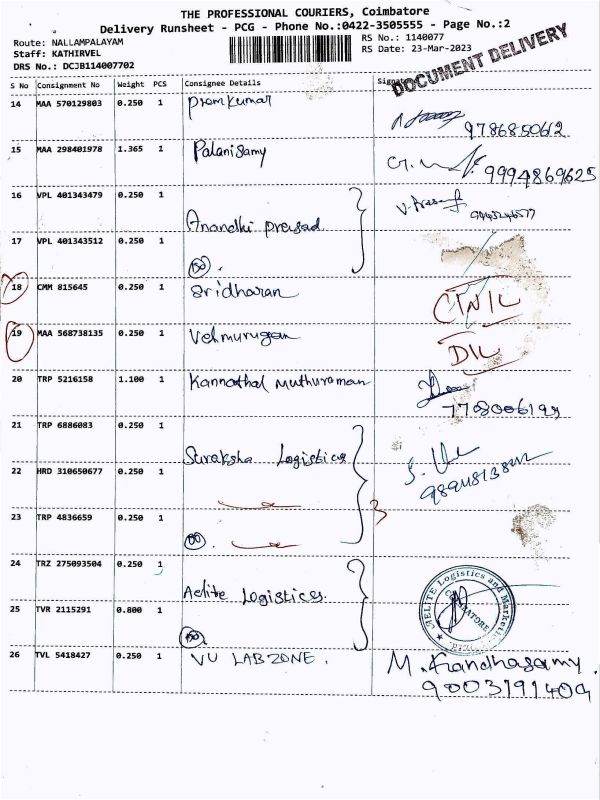 THE PROFESSIONAL COURIERS, Coimbatore
Delivery Runsheet - PCG - Phone No.:0422-3505555 - Page No.:2
Route: NALLAMPALAYAM
RS No.: 1140077
Staff: KATHIRVEL
RS Date: 23-Mar-2023
DRS No.: DCJB114007702
DOCUMENT DELIVERY
S No Consignment No Weight PCS Consignee Details Signature
14 MAA 570129803 0.250 1 Premkumar
9786850612
15 MAA 298401978 1.365 1 Palanisamy
9994869625
16 VPL 401343479 0.250 1
Anandhi prasad
17 VPL 401343512 0.250 1
18 CMM 815645 0.250 1 Sridharan
19 MAA 568738135 0.250 1 Velmurugan
DIL
20 TRP 5216158 1.100 1 Kannathal Muthuraman
21 TRP 6886083 0.250 1
Suraksha Logistics
22 HRD 310650677 0.250 1
23 TRP 4836659 0.250 1
3
24 TRZ 275093504 0.250 1
Aelite Logistices
25 TVR 2115291 0.800 1
26 TVL 5418427 0.250 1 VU LABZONE.
M. Kandhasamy.
9003191404